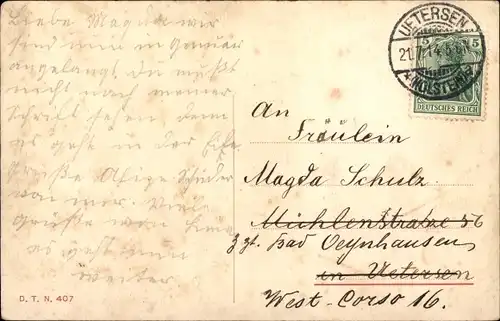 Liebe Magda wir
sind nun in
angelangt du mußt
nicht nach meiner
Schrift sehen denn
es geht in der Eile
Grüße
von mir. Viel
Grüße von
es geht nun
weiter
UETERSEN
21.7.14.5-6N
HOLSTEIN
5
DEUTSCHES REICH
An
Fräulein
Magda Schulz
Mühlenstrasse 56
z. Zt. Bad Oeynhausen
in Uetersen
West-Corso 16.
D. T. N. 407